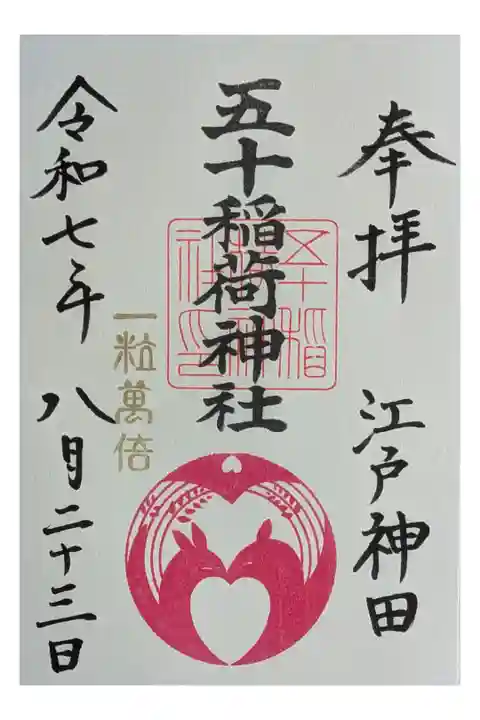 奉拝 江戸神田
五十稲荷神社
一粒萬倍
令和七年 八月二十三日